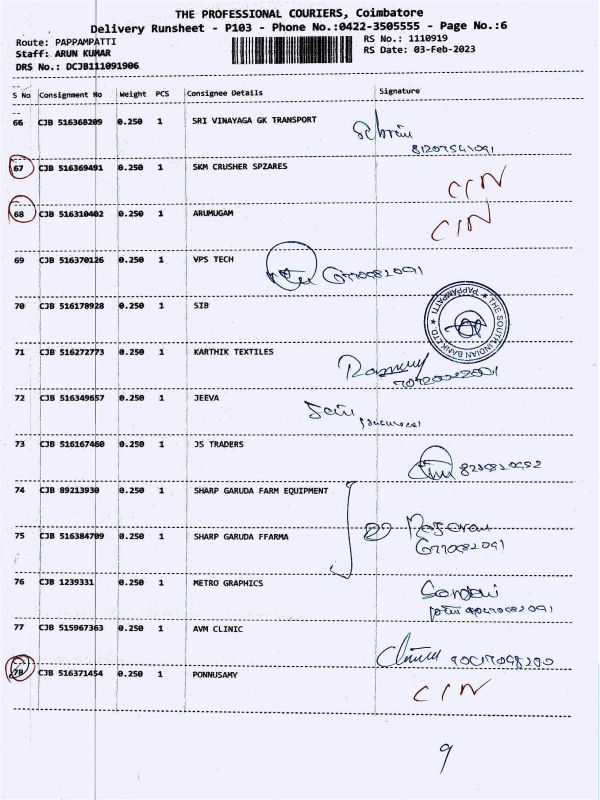 THE PROFESSIONAL COURIERS, Coimbatore
Delivery Runsheet - P103 - Phone No.:0422-3505555 - Page No.:6
Route: PAPPAMPATTI RS No.: 1110919
Staff: ARUN KUMAR RS Date: 03-Feb-2023
DRS No.: DCJB111091906
S No Consignment No Weight PCS Consignee Details Signature
66 CJB 516368209 0.250 1 SRI VINAYAGA GK TRANSPORT
67 CJB 516369491 0.250 1 SKM CRUSHER SPZARES
CIN
68 CJB 516310402 0.250 1 ARUMUGAM
CIN
69 CJB 516370126 0.250 1 VPS TECH
70 CJB 516178928 0.250 1 SIB
THE SOUTH INDIAN BANK LTD. ★ PAPPAMPATTI ★
71 CJB 516272773 0.250 1 KARTHIK TEXTILES
72 CJB 516349657 0.250 1 JEEVA
73 CJB 516167460 0.250 1 JS TRADERS
74 CJB 89213930 0.250 1 SHARP GARUDA FARM EQUIPMENT
75 CJB 516384709 0.250 1 SHARP GARUDA FFARMA
76 CJB 1239331 0.250 1 METRO GRAPHICS
77 CJB 515967363 0.250 1 AVM CLINIC
78 CJB 516371454 0.250 1 PONNUSAMY
CIN
9